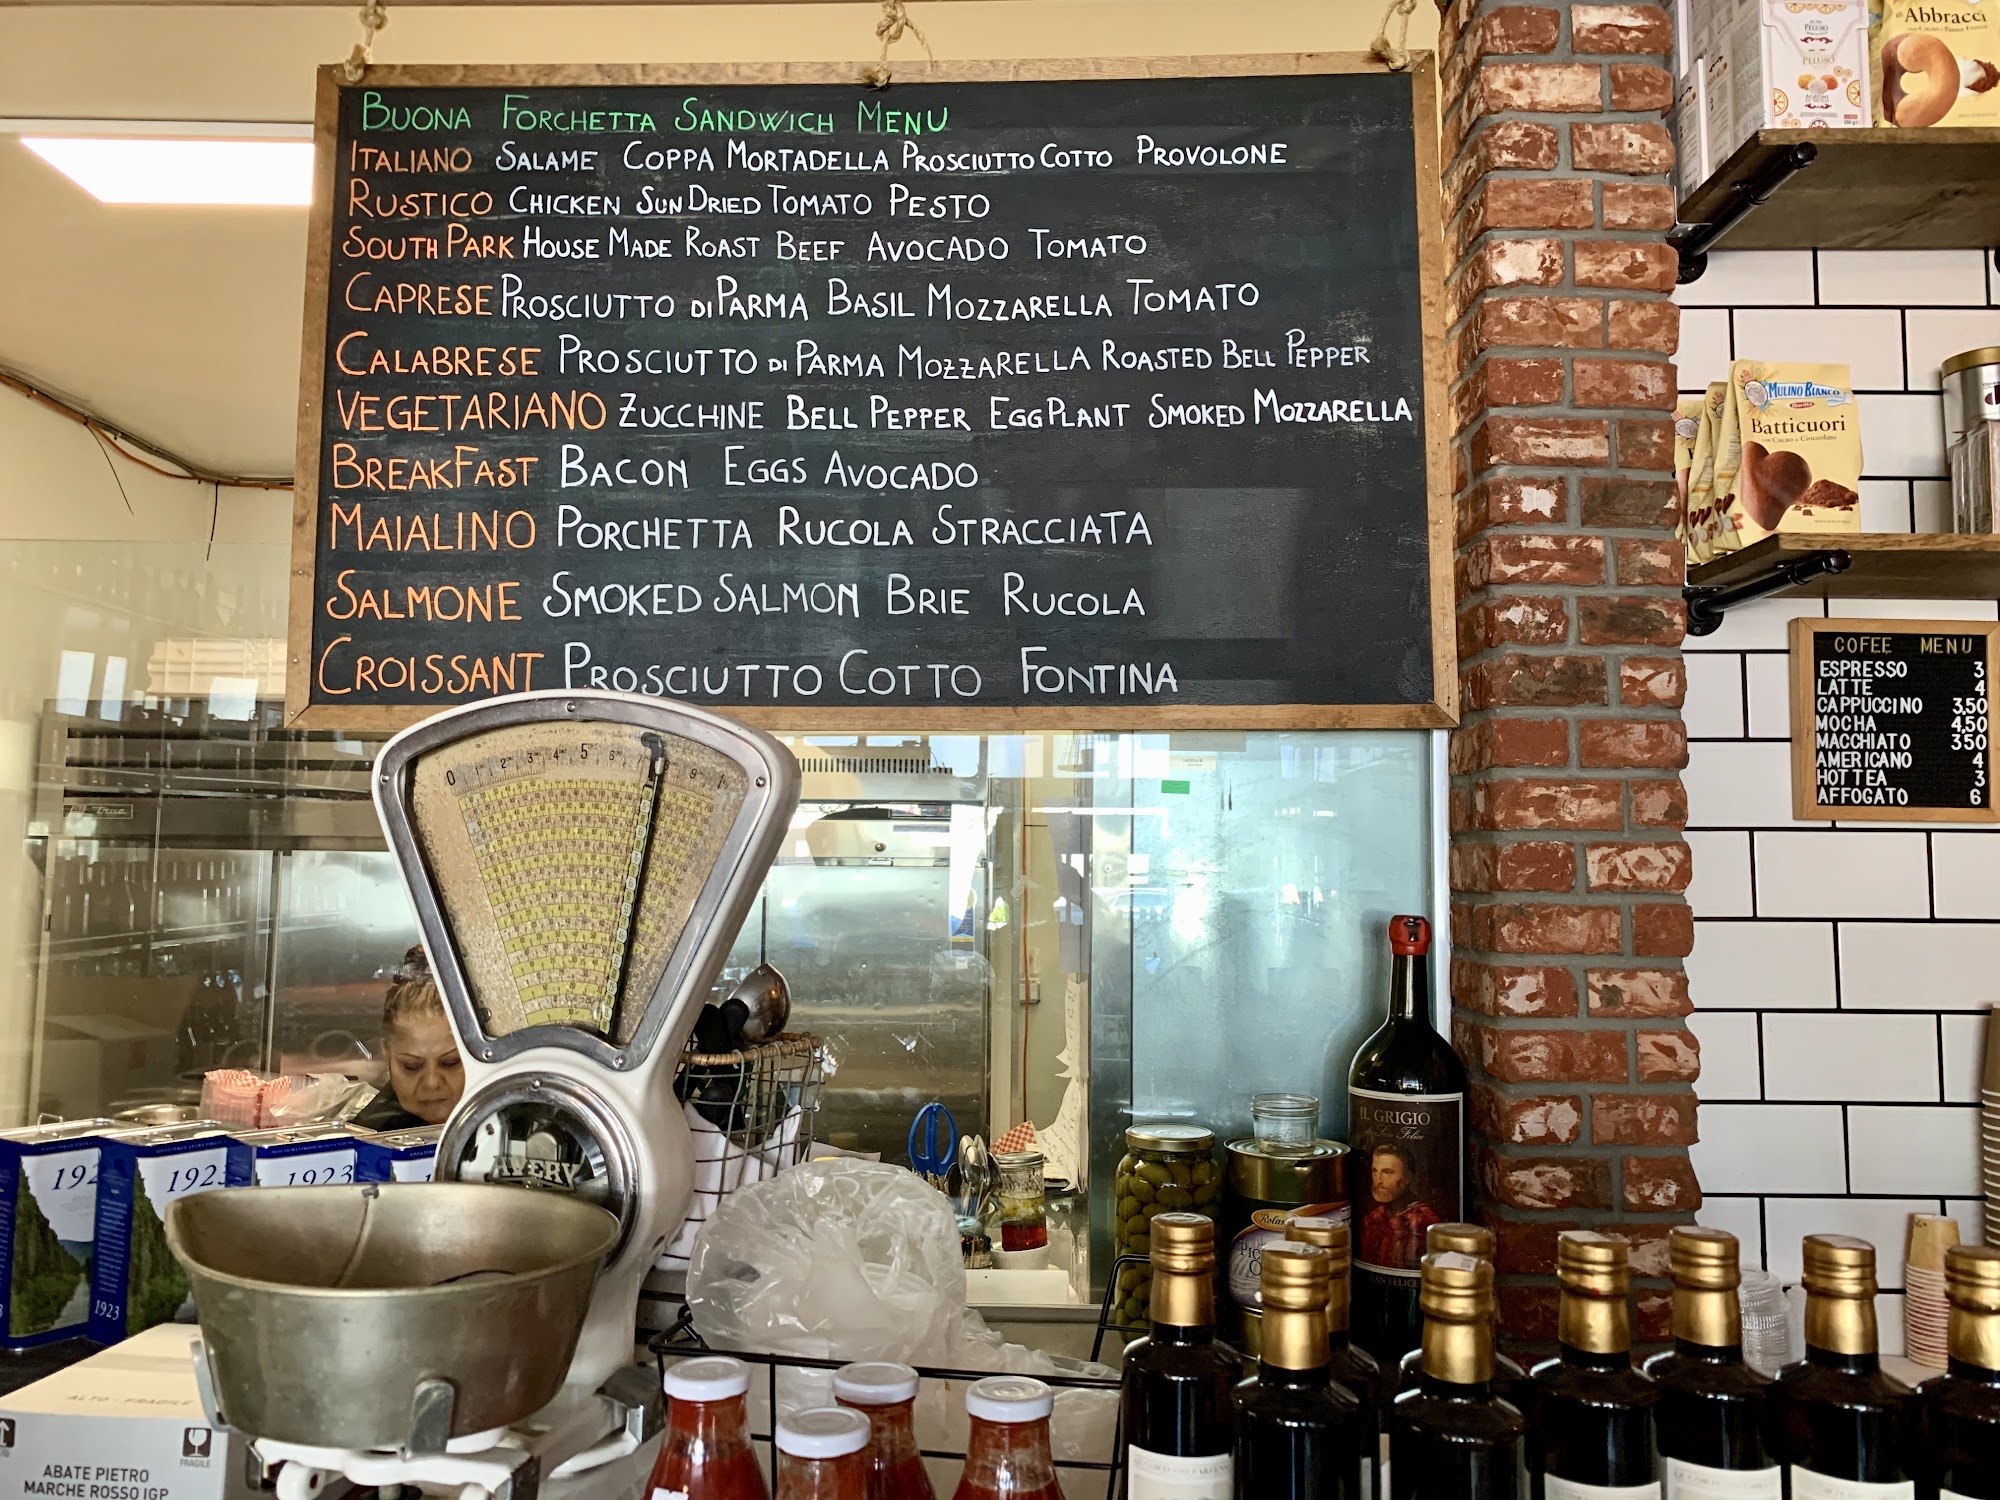 BUONA FORCHETTA SANDWICH MENU
ITALIANO SALAME COPPA MORTADELLA PROSCIUTTO COTTO PROVOLONE
RUSTICO CHICKEN SUN DRIED TOMATO PESTO
SOUTH PARK HOUSE MADE ROAST BEEF AVOCADO TOMATO
CAPRESE PROSCIUTTO DI PARMA BASIL MOZZARELLA TOMATO
CALABRESE PROSCIUTTO DI PARMA MOZZARELLA ROASTED BELL PEPPER
VEGETARIANO ZUCCHINE BELL PEPPER EGGPLANT SMOKED MOZZARELLA
BREAKFAST BACON EGGS AVOCADO
MAIALINO PORCHETTA RUCOLA STRACCIATA
SALMONE SMOKED SALMON BRIE RUCOLA
CROISSANT PROSCIUTTO COTTO FONTINA
Abbracci
PELUSO
PELUSO
MULINO BIANCO
Batticuori
con Cacao e Cioccolato
COFEE MENU
ESPRESSO 3
LATTE 4
CAPPUCCINO 3,50
MOCHA 4,50
MACCHIATO 350
AMERICANO 4
HOT TEA 3
AFFOGATO 6
0 1 2 3 4 5 6 7 9
true
AVERY
IL GRIGIO
SAN FELICE
192
1923
1923
1923
ALTO - FRAGILE
FRAGILE
ABATE PIETRO
MARCHE ROSSO IGP